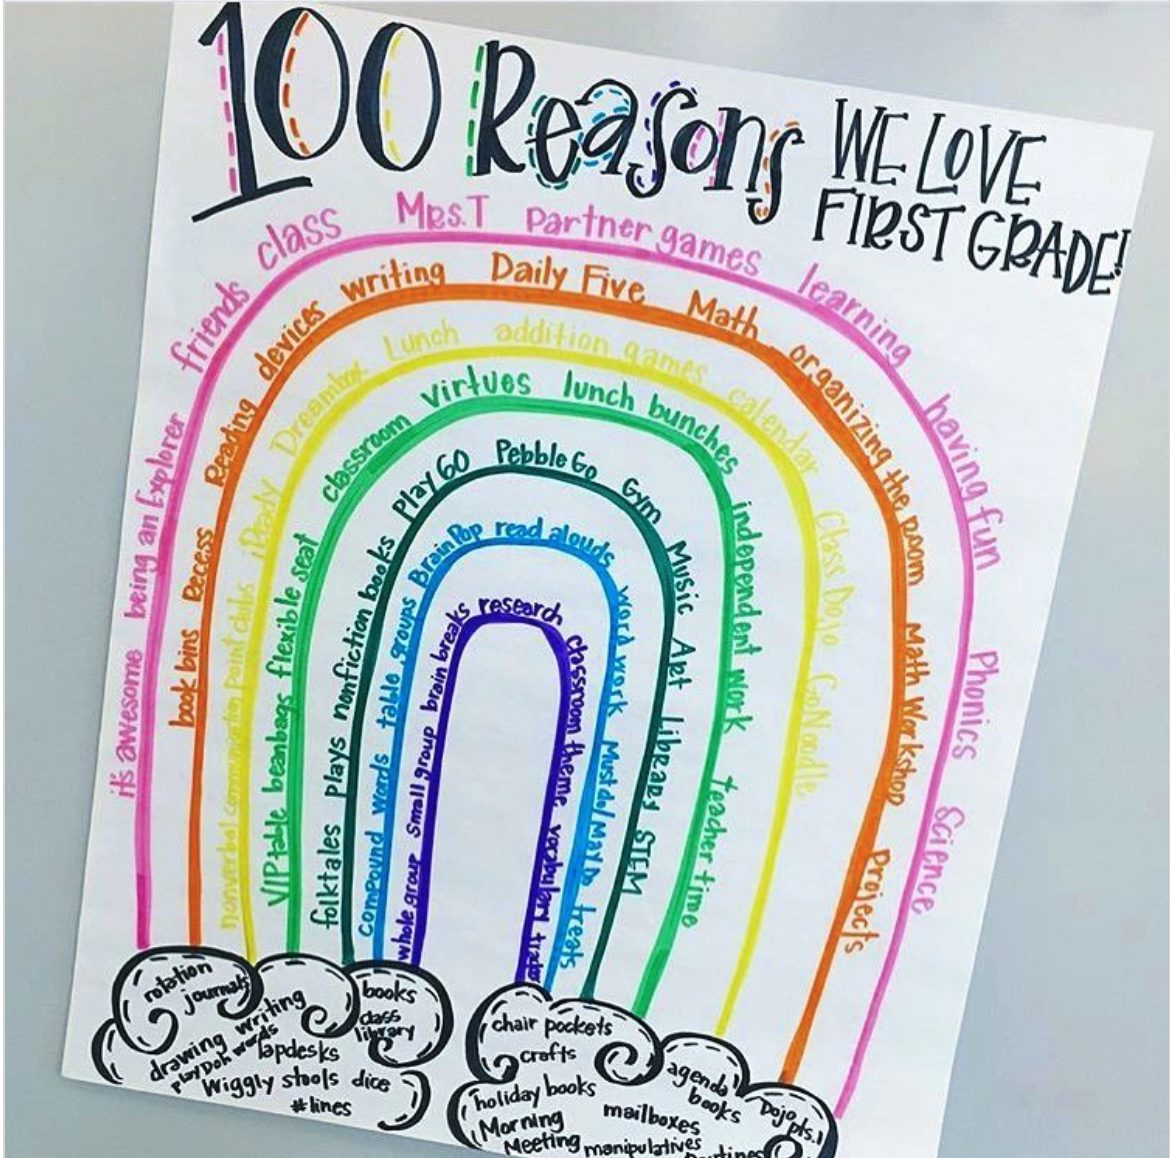 100 Reasons
WE LOVE
FIRST GRADE!
it's awesome being an Explorer friends class Mrs.T partner games learning having fun Phonics Science
book bins Recess Reading devices writing Daily Five Math organizing the room Math Workshop Projects
nonverbal communication point clubs iReady Dreambox Lunch addition games calendar Class Dojo GoNoodle
VIP table beanbags flexible seat classroom virtues lunch bunches independent work teacher time
folktales plays nonfiction books Play 60 Pebble Go Gym Music Art Library STEM
compound words table groups BrainPop read alouds word work Mustdo/MayDo treats
whole group Small group brain breaks research classroom theme vocabulary
rotation
journals
writing
drawing
PlayDoh words
lapdesks
Wiggly stools dice
#lines
books
class
library
chair pockets
crafts
holiday books
Morning
Meeting
mailboxes
manipulatives
agenda
books
Dojo
pts.!